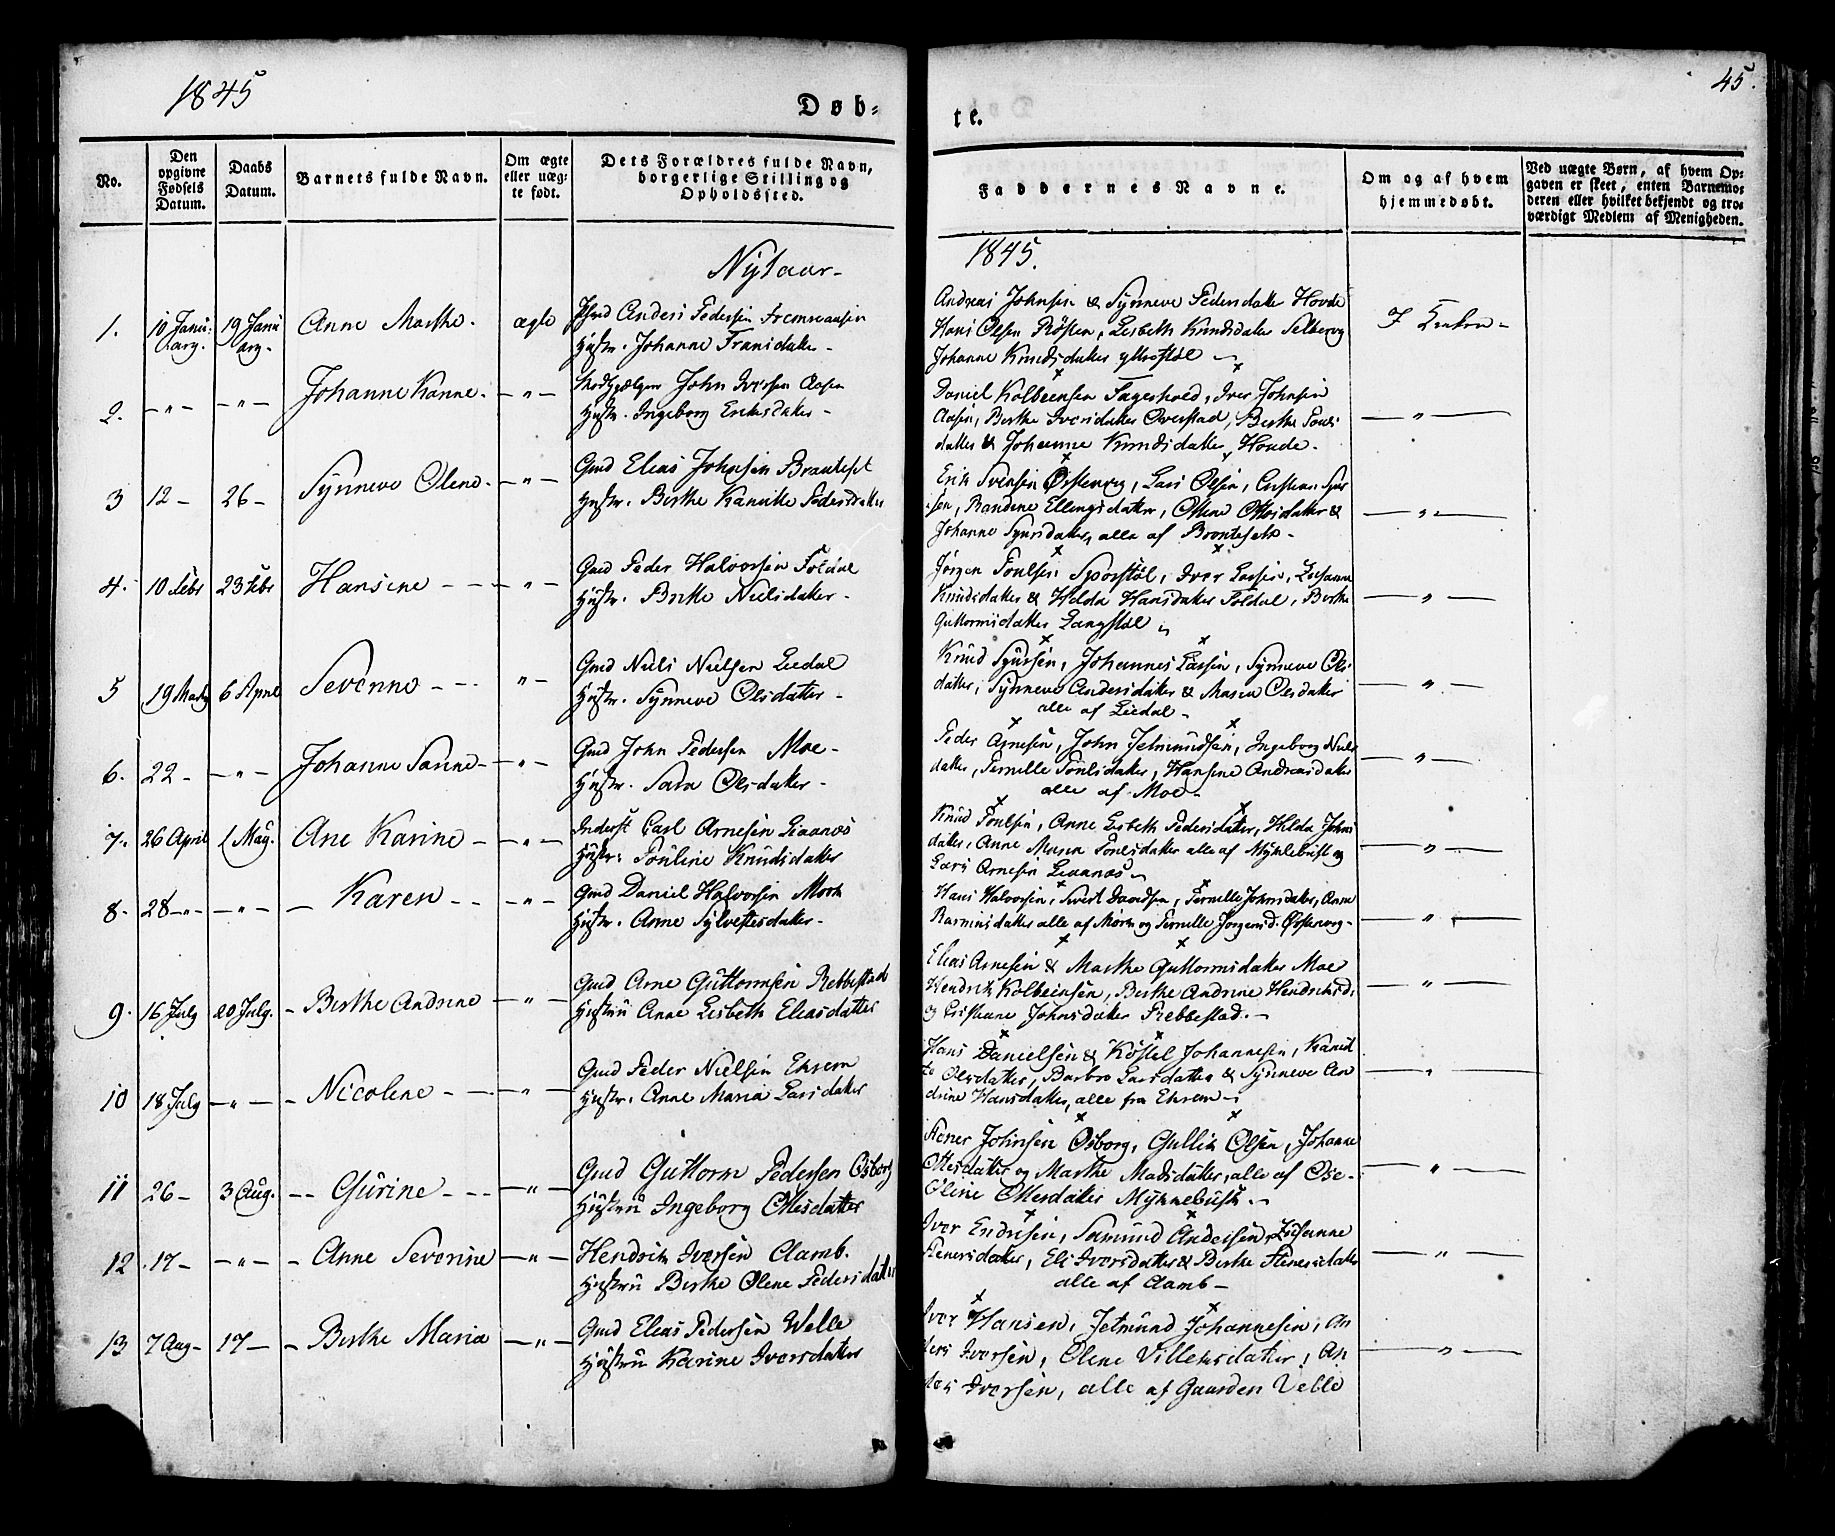 1845
Døb-
te.
45.
No.
Den opgivne Fødsels Datum.
Daabs Datum.
Barnets fulde Navn.
Om ægte eller uægte født.
Dets Forældres fulde Navn, borgerlige Stilling og Opholdssted.
Faddernes Navne.
Om og af hvem hjemmedøbt.
Ved uægte Børn, af hvem Opgaven er skeet, enten Barnemoderen eller hvilket bekjendt og troværdigt Medlem af Menigheden.
Nytaar-
1845.
1. 10 Januarg. 19 Januarg- Anne Marthe. ægte Anders Pedersen
Hustr. Johanne
Andreas Johnsen & Synneve Pedersdatter Hovde
Hans Olsen Lisbeth Knudsdatter Selberg
Johanne Knudsdatter
2. -"- -"- Johanne Kanne. -"- John Iversen Aasen
Hustr. Ingeborg Eriksdatter-
Daniel Kolbeensen Iver Johnsen
Aasen, Berthe Iversdatter Overstad, Berthe Pouls
datter & Johanne Knudsdatter, Hovde-
-"-
3 12- 26- Synneve Olene. -"- Gmd Elias Johnsen Brauteset
Hustr. Berthe Kanutte Pedersdatter
Erik Svensen Ørstenvig, Lars Olsen, Cristian Sjur
sen, Randine Ellingsdatter, Oline Ottesdatter &
Johanne Sjursdatter, alle af
-"-
4. 10 Febr 23 Febr Hansine - -"- Gmd Peder Halvorsen Foldal
Hustr. Brithe Nielsdatter-
Jørgen Poulsen Iver Larsen, Lisanna
Knudsdatter & Hilda Hansdatter Foldal, Berthe
Guttormsdatter Langstøl
-"-
5 19 Marts 6 April Severine - -"- Gmd Niels Nielsen Liedal
Hustr. Synneve Olsdatter-
Knud Sjursen, Johannes Larsen, Synneve Ols-
datter, Synneve Andersdatter & Maria Olsdatter
alle af Liedal-
-"-
6. 22- -"- Johanne Sanne- -"- Gmd John Pedersen Moe-
Hustr. Sara Olsdatter-
Peder Arnesen, John Jetmundsen, Ingeborg Niels
datter, Pernille Poulsdatter, Hansine Andreasdatter
alle af Moe-
-"-
7. 26 April 1 May. Ane Karine - -"- Inderst Carl Arnesen Livanos
Hustr: Pouline Knudsdatter
Knud Poulsen, Anne Lisbeth Pedersdatter, Hilda Johns
datter, Anne Maria Poulsdatter alle af Myklebust og
Lars Arnesen Livanos
-"-
8- 28-"- -"- - Karen - -"- Gmd Daniel Halvorsen Mork
Hustr. Anne Sylvestersdatter-
Hans Halvorsen, Sivert Davidsen, Pernille Johnsdatter, Anne
Rasmusdatter alle af Mork og Pernille Jørgensd. Ørstenvig-
-"-
9. 16 July 20 July. - Berthe Andrine -"- Gmd Arne Guttormsen Rebbestad
Hustru Anne Lisbeth Eliasdatter
Elias Arnesen & Marthe Guttormsdatter Moe
Hendrik Kolbeinsen, Berthe Andrine Hendriksd:
og Cristiane Johnsdatter Rebbestad.-
-"-
10 18 July -"- - Nicoline - -"- Gmd Peder Nielsen Ekrem
Hustr. Anne Maria Larsdatter
Hans Danielsen & Røstel Johannesen, Kanut
te Olsdatter, Barbro Larsdatter & Synneve An
drine Hansdatter, alle fra Ekrem-
-"-
11 26- 3 Aug. -- Gurine - -"- Gmd Guttorm Pedersen Osborg
Hustru Ingeborg Ottesdatter
Stener Johnsen Osborg, Gullik Olsen, Johanne
Ottesdatter og Marthe Madsdatter, alle af Ose-
Oline Ottersdatter Myklebust.-
-"-
12 17- -"- - Anne Severine -"- Hendrik Iversen Aamb.
Hustru Berthe Olene Pedersdatter
Iver Endresen, Samund Andersen, Lisanne
Stenersdatter, Eli Iversdatter & Berthe Stenersdatter
alle af Aamb-
-"-
13 7 Aug- 17- - Berthe Maria -"- Gmd Elias Pedersen Welle
Hustru Karine Iversdatter
Iver Hansen, Jetmund Johannesen, An
ders Iversen, Olene Villumsdatter, An
ders Iversen, alle af Gaarden Velle
-"-